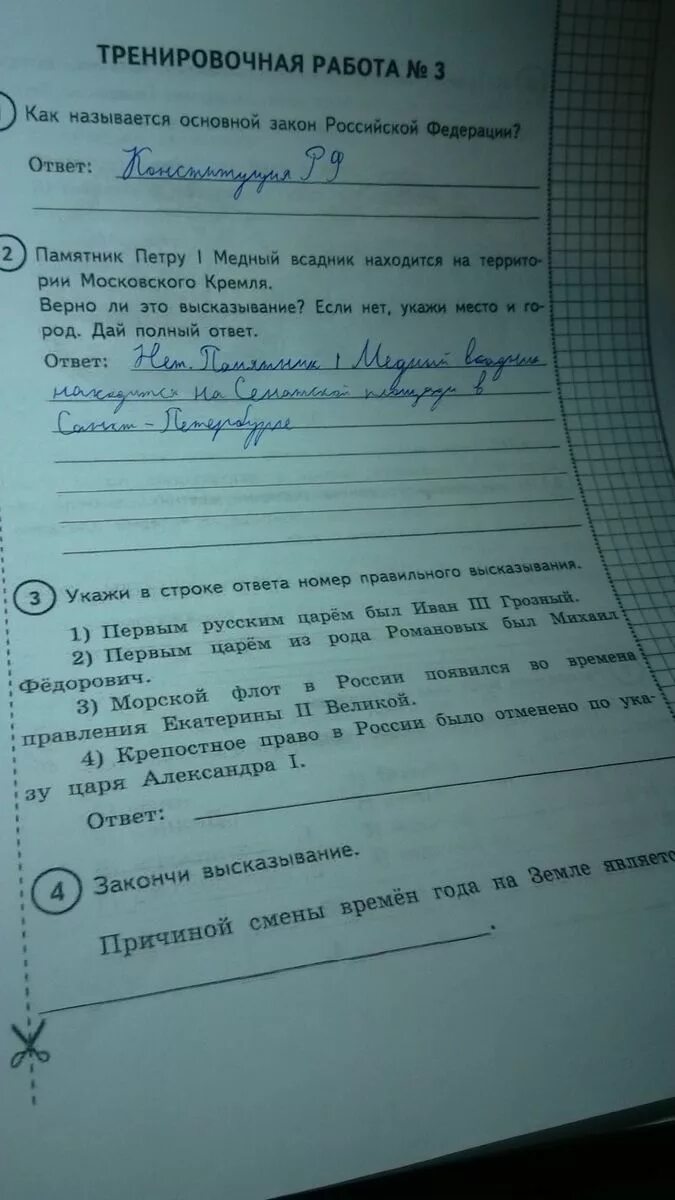 ТРЕНИРОВОЧНАЯ РАБОТА № 3
1 Как называется основной закон Российской Федерации?
Ответ: Конституция РФ
2 Памятник Петру I Медный всадник находится на террито-
рии Московского Кремля.
Верно ли это высказывание? Если нет, укажи место и го-
род. Дай полный ответ.
Ответ: Нет. Памятник I Медный всадник
находится на Сенатской площади в
Санкт-Петербурге
3 Укажи в строке ответа номер правильного высказывания.
1) Первым русским царём был Иван III Грозный.
2) Первым царём из рода Романовых был Михаил
Фёдорович.
3) Морской флот в России появился во времена
правления Екатерины II Великой.
4) Крепостное право в России было отменено по ука-
зу царя Александра I.
Ответ:
4 Закончи высказывание.
Причиной смены времён года на Земле являетс
.